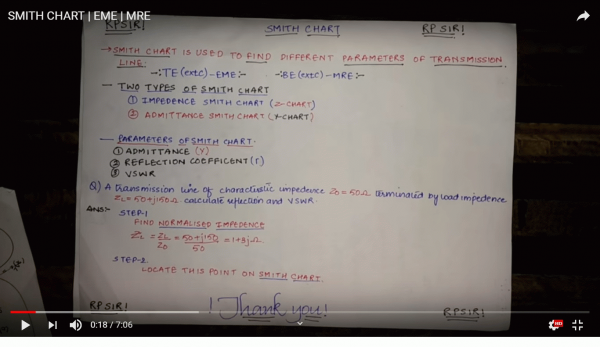 SMITH CHART | EME | MRE
RPSIR! SMITH CHART RPSIR!
→SMITH CHART IS USED TO FIND DIFFERENT PARAMETERS OF TRANSMISSION
LINE:
-:TE(extc)-EME:- -:BE(extc)-MRE:-
— TWO TYPES OF SMITH CHART
① IMPEDENCE SMITH CHART (Z-CHART)
② ADMITTANCE SMITH CHART (Y-CHART)
— PARAMETERS OF SMITH CHART-
① ADMITTANCE (Y)
② REFLECTION COEFFICENT(Γ)
③ VSWR
Q) A transmission line of characteristic impedence Z₀ = 50Ω terminated by load impedence
ZL = 50+j150Ω calculate reflection and VSWR.
Ans:- STEP-1
FIND NORMALISED IMPEDENCE
ZL = ZL/Z₀ = 50+j150/50 = 1+3jΩ.
STEP-2
LOCATE THIS POINT ON SMITH CHART.
RPSIR! ! Thank you! RPSIR!
0:18 / 7:06
HD